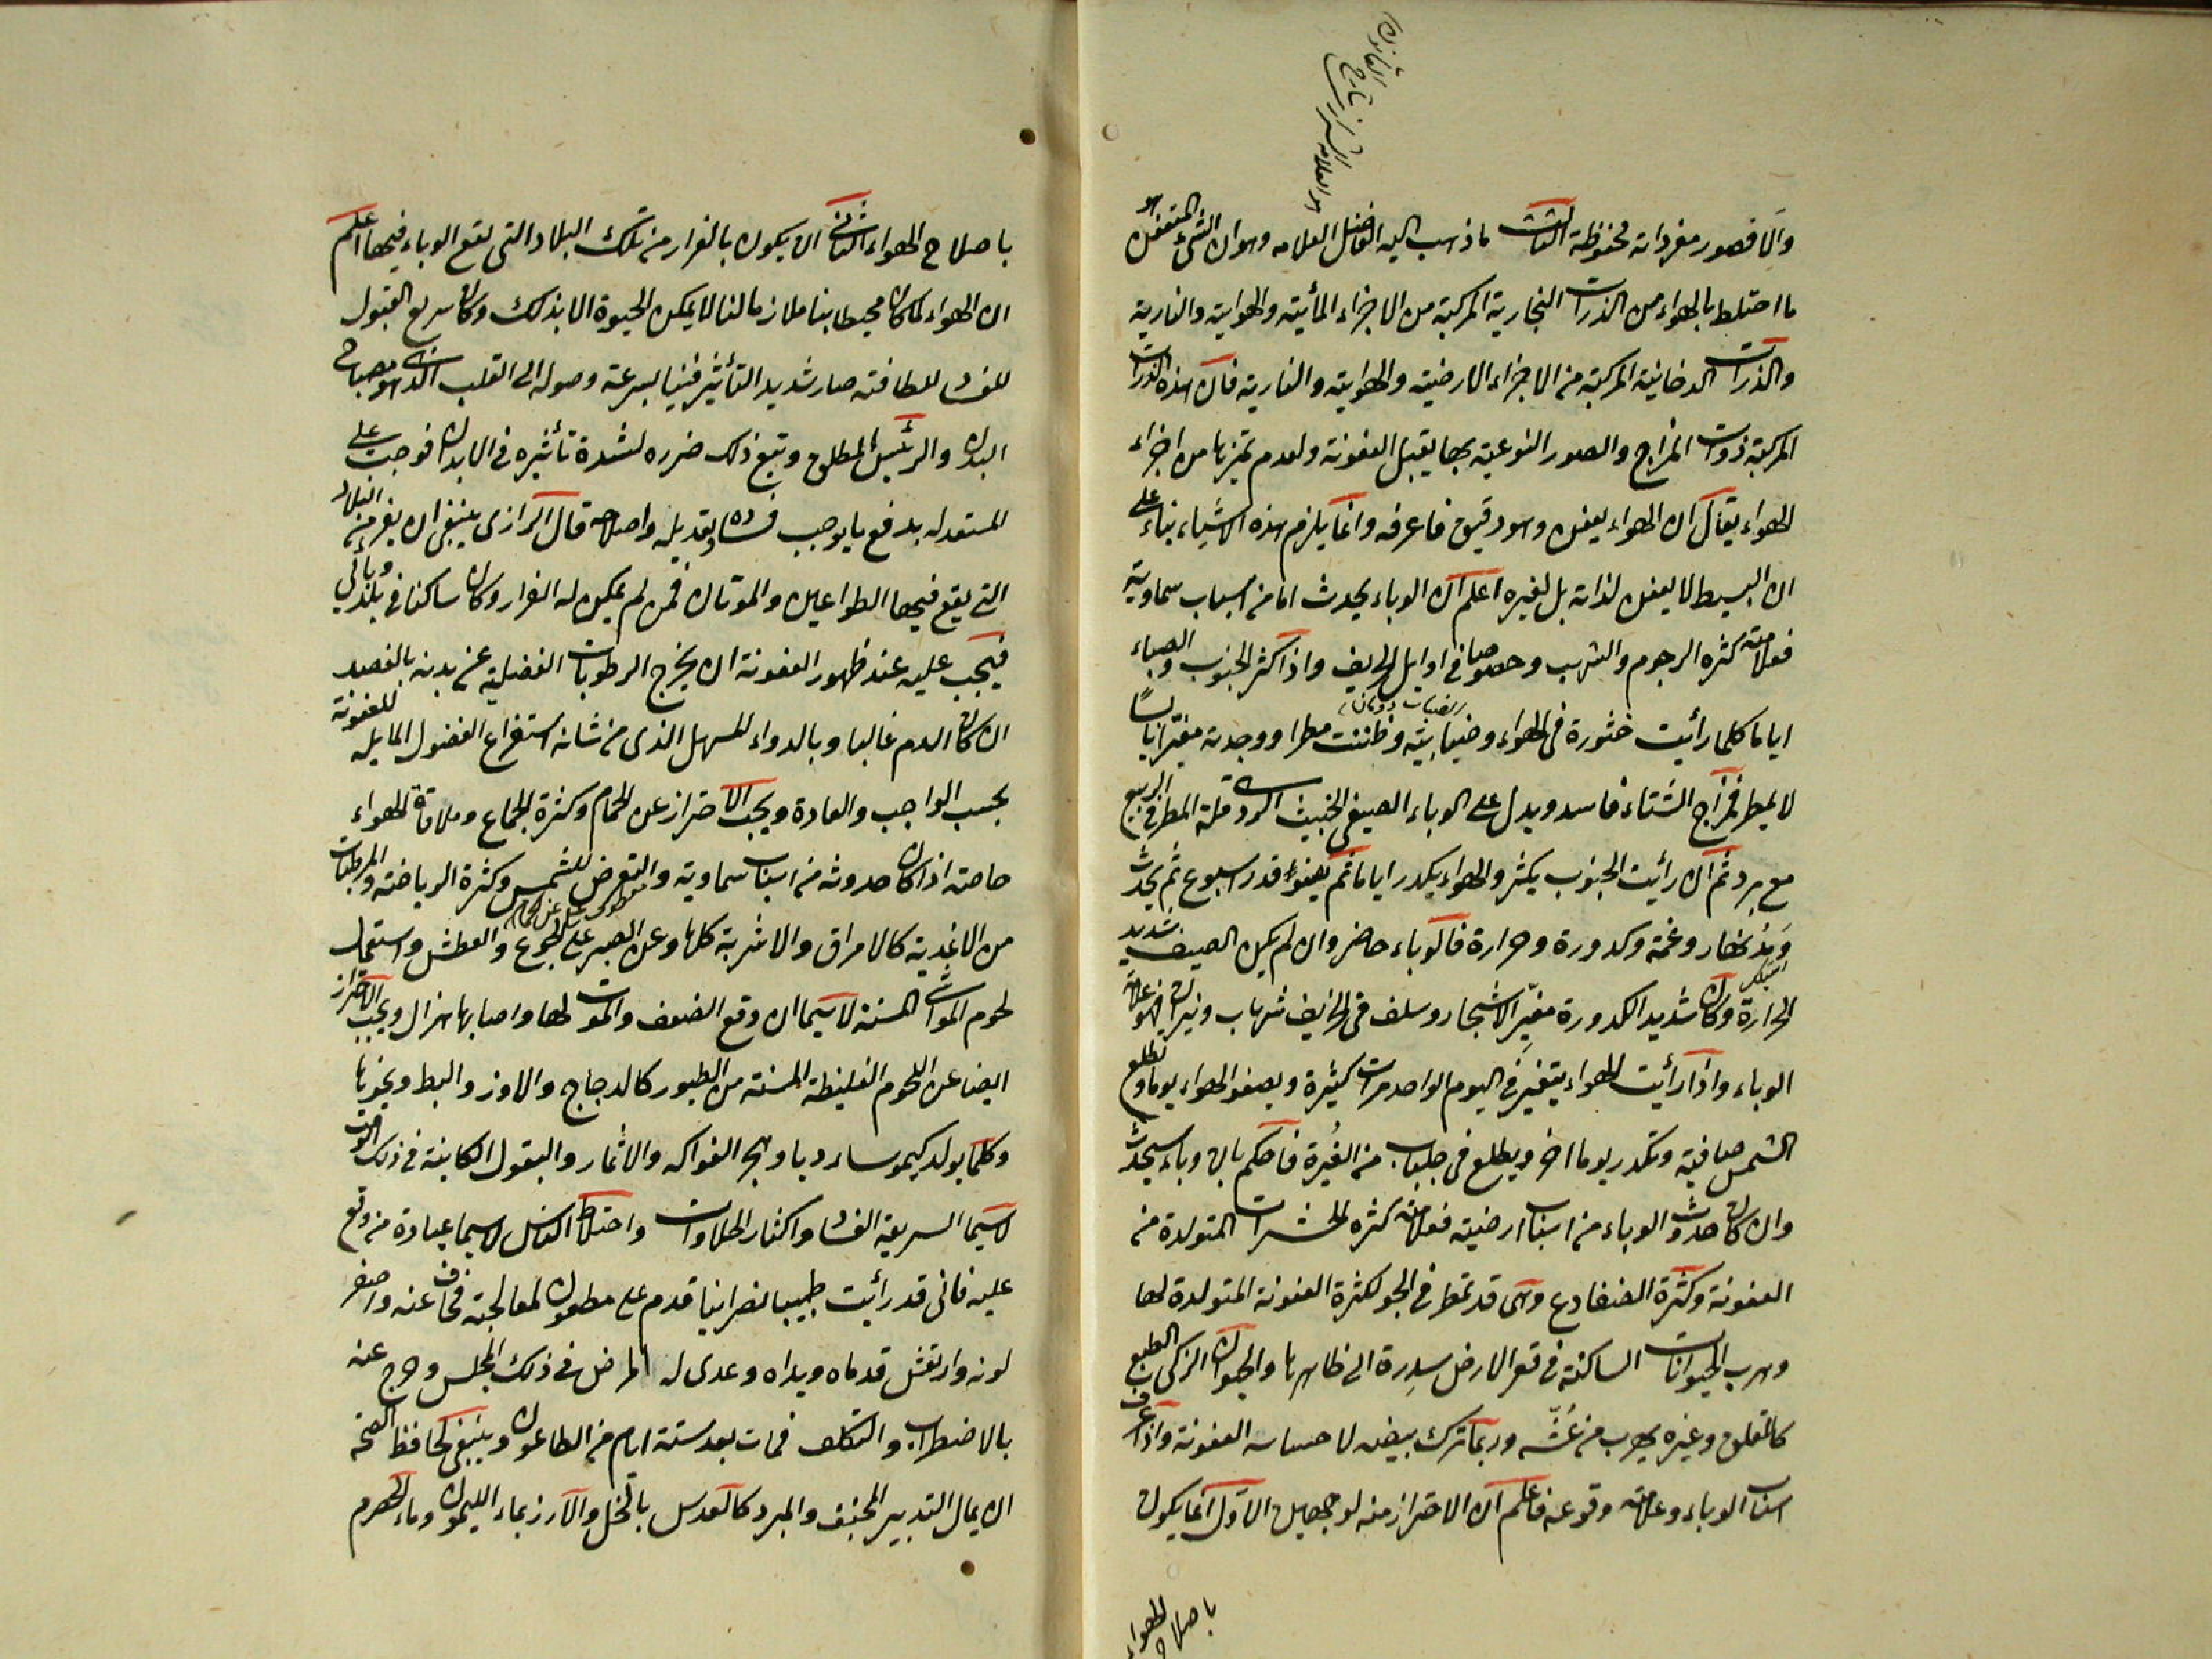 هو العلامة الشيرازي شارح القانون
والا فصور مفرداته محفوظة الثالث ما ذهب اليه الفاضل العلامه وهو ان الشئ المتعفن هو
ما اختلط بالهواء من الذرات البخارية المركبة من الاجزاء المائية والهوائية والنارية
والذرات الدخانية المركبة من الاجزاء الارضية والهوائية والنارية فان هذه الذرات
المركبة ذوات المزاج والصور النوعية بها يقبل العفونة ولعدم تميزها من اجزاء
الهواء يقال ان الهواء يعفن وهو دقيق فاعرفه وانما يلزم هذه الاشياء بناء على
ان البسيط لا يعفن لذاته بل لغيره اعلم ان الوباء يحدث اما من اسباب سماوية
فعلامته كثره الرجوم والشهب وخصوصا في اوايل الخريف واذا كثر الجنوب والصباء
اياما كلما رأيت خثورة في الهواء وضبابية وظننت مطرا ووجدته مغبرا يابسًا
لا يمطر فمزاج الشتاء فاسد ويدل على الوباء الصيفي الخبيث الردى قلة المطر في الربيع
مع برد ثم ان رأيت الجنوب يكثر والهواء يكدر اياما ثم يصفو قدر اسبوع ثم يحدث
ومد نهار وغمة وكدورة وحرارة فالوباء حاضر وان لم يكن الصيف شديد
الحرارة وكان شديد الكدورة مغبّر الاشجار وسلف في الخريف شهاب ونيران فهو علامة
الوباء واذا رأيت الهواء يتغير في اليوم الواحد مرات كثيرة ويصفو الهواء يوما وتطلع
الشمس صافية وتكدر يوما اخر ويطلع في جلباب من الغُبرة فاحكم بان وباء سيحدث
وان كان حدوث الوباء من اسباب ارضية فعلامته كثره الحشرات المتولدة من
العفونة وكثرة الضفادع وهى قد تمطر في الجو لكثرة العفونة المتولدة لها
وهرب الحيوانات الساكنة في قعر الارض سدرة الى ظاهرها والحيوان الزكى الطبع
كاللقلق وغيره يهرب من عُشّه وربما ترك بيضه لاحساسه العفونة واذا عرف
اسباب الوباء وعلامة وقوعه فاعلم ان الاحتراز منه لوجهين الاول انما يكون
باصلاح الهواء
باصلاح الهواء الثانى ان يكون بالفرار من تلك البلاد التى يقع الوباء فيها اعلم
ان الهواء لما كان محيطا بنا ملازما لنا لا يمكن الحيوة الا بذلك وكان سريع القبول
للفساد للطافته صار شديد التأثير فينا لسرعة وصوله الى القلب الذى هو مصباح
البدن والرئيس المطلق وتبع ذلك ضرره لشدة تأثيره في الابدان فوجب على
المستعد له بدفع ما يوجب فساده وبتعديله واصلاحه قال الرازى ينبغى ان يفر من البلاد
التى يقع فيها الطواعين والموتان فمن لم يمكن له الفرار وكان ساكنا في بلد وبائي
فيجب عليه عند ظهور العفونة ان يخرج الرطوبات الفضلية عن بدنه بالفصد
ان كان الدم غالبا وبالدواء المسهل الذى من شانه استفراغ الفضول المايلة للعفونة
بحسب الواجب والعادة ويجب الاحتراز عن الحمام وكثرة الجماع وملاقاة الهواء
خاصة اذا كان حدوثه من اسباب سماوية والتعرض للشمس وكثرة الرياضة والمرطبات
من الاغدية كالامراق والاشربة كلها وعن الصبر على الجوع والعطش واستعمال
لحوم المواشى المسنة لاسيما ان وقع الضعف والموت لها واصابها هزال ويجب الاحتراز
ايضا عن اللحوم الغليظة المسنة من الطيور كالدجاج والاوز والبط ونحوها
وكلما يولد كيموسا رديا وهجر الفواكه والاثمار والبقول الكاينة في ذلك الوقت
لاسيما السريعة الفساد واكثار الحلاوات واختلاط الناس لاسيما عيادة من وقع
عليه فانى قد رأيت طبيبا نصرانيا قدم على مطعون لمعالجته فخاف عنه واصفر
لونه وارتعش قدماه ويداه وعدى له المرض في ذلك المجلس وخرج عنه
بالاضطراب والتكلف فمات بعد ستة ايام من الطاعون وينبغى لحافظ الصحة
ان يمال التدبير المجفف والمبرد كالعدس بالخل والارز بماء الليمون وماء الحصرم